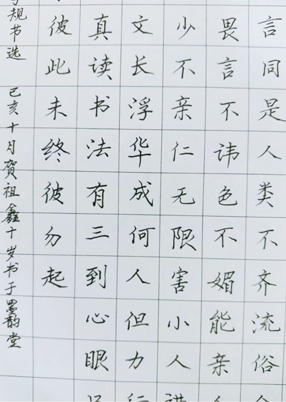 言同是人类不齐流俗
畏言不讳色不媚能亲
少不亲仁无限害小人进
文长浮华成何人但力行
真读书法有三到心眼
彼此未终彼勿起
规节选 己亥十月贺祖鑫十岁书于墨韵堂